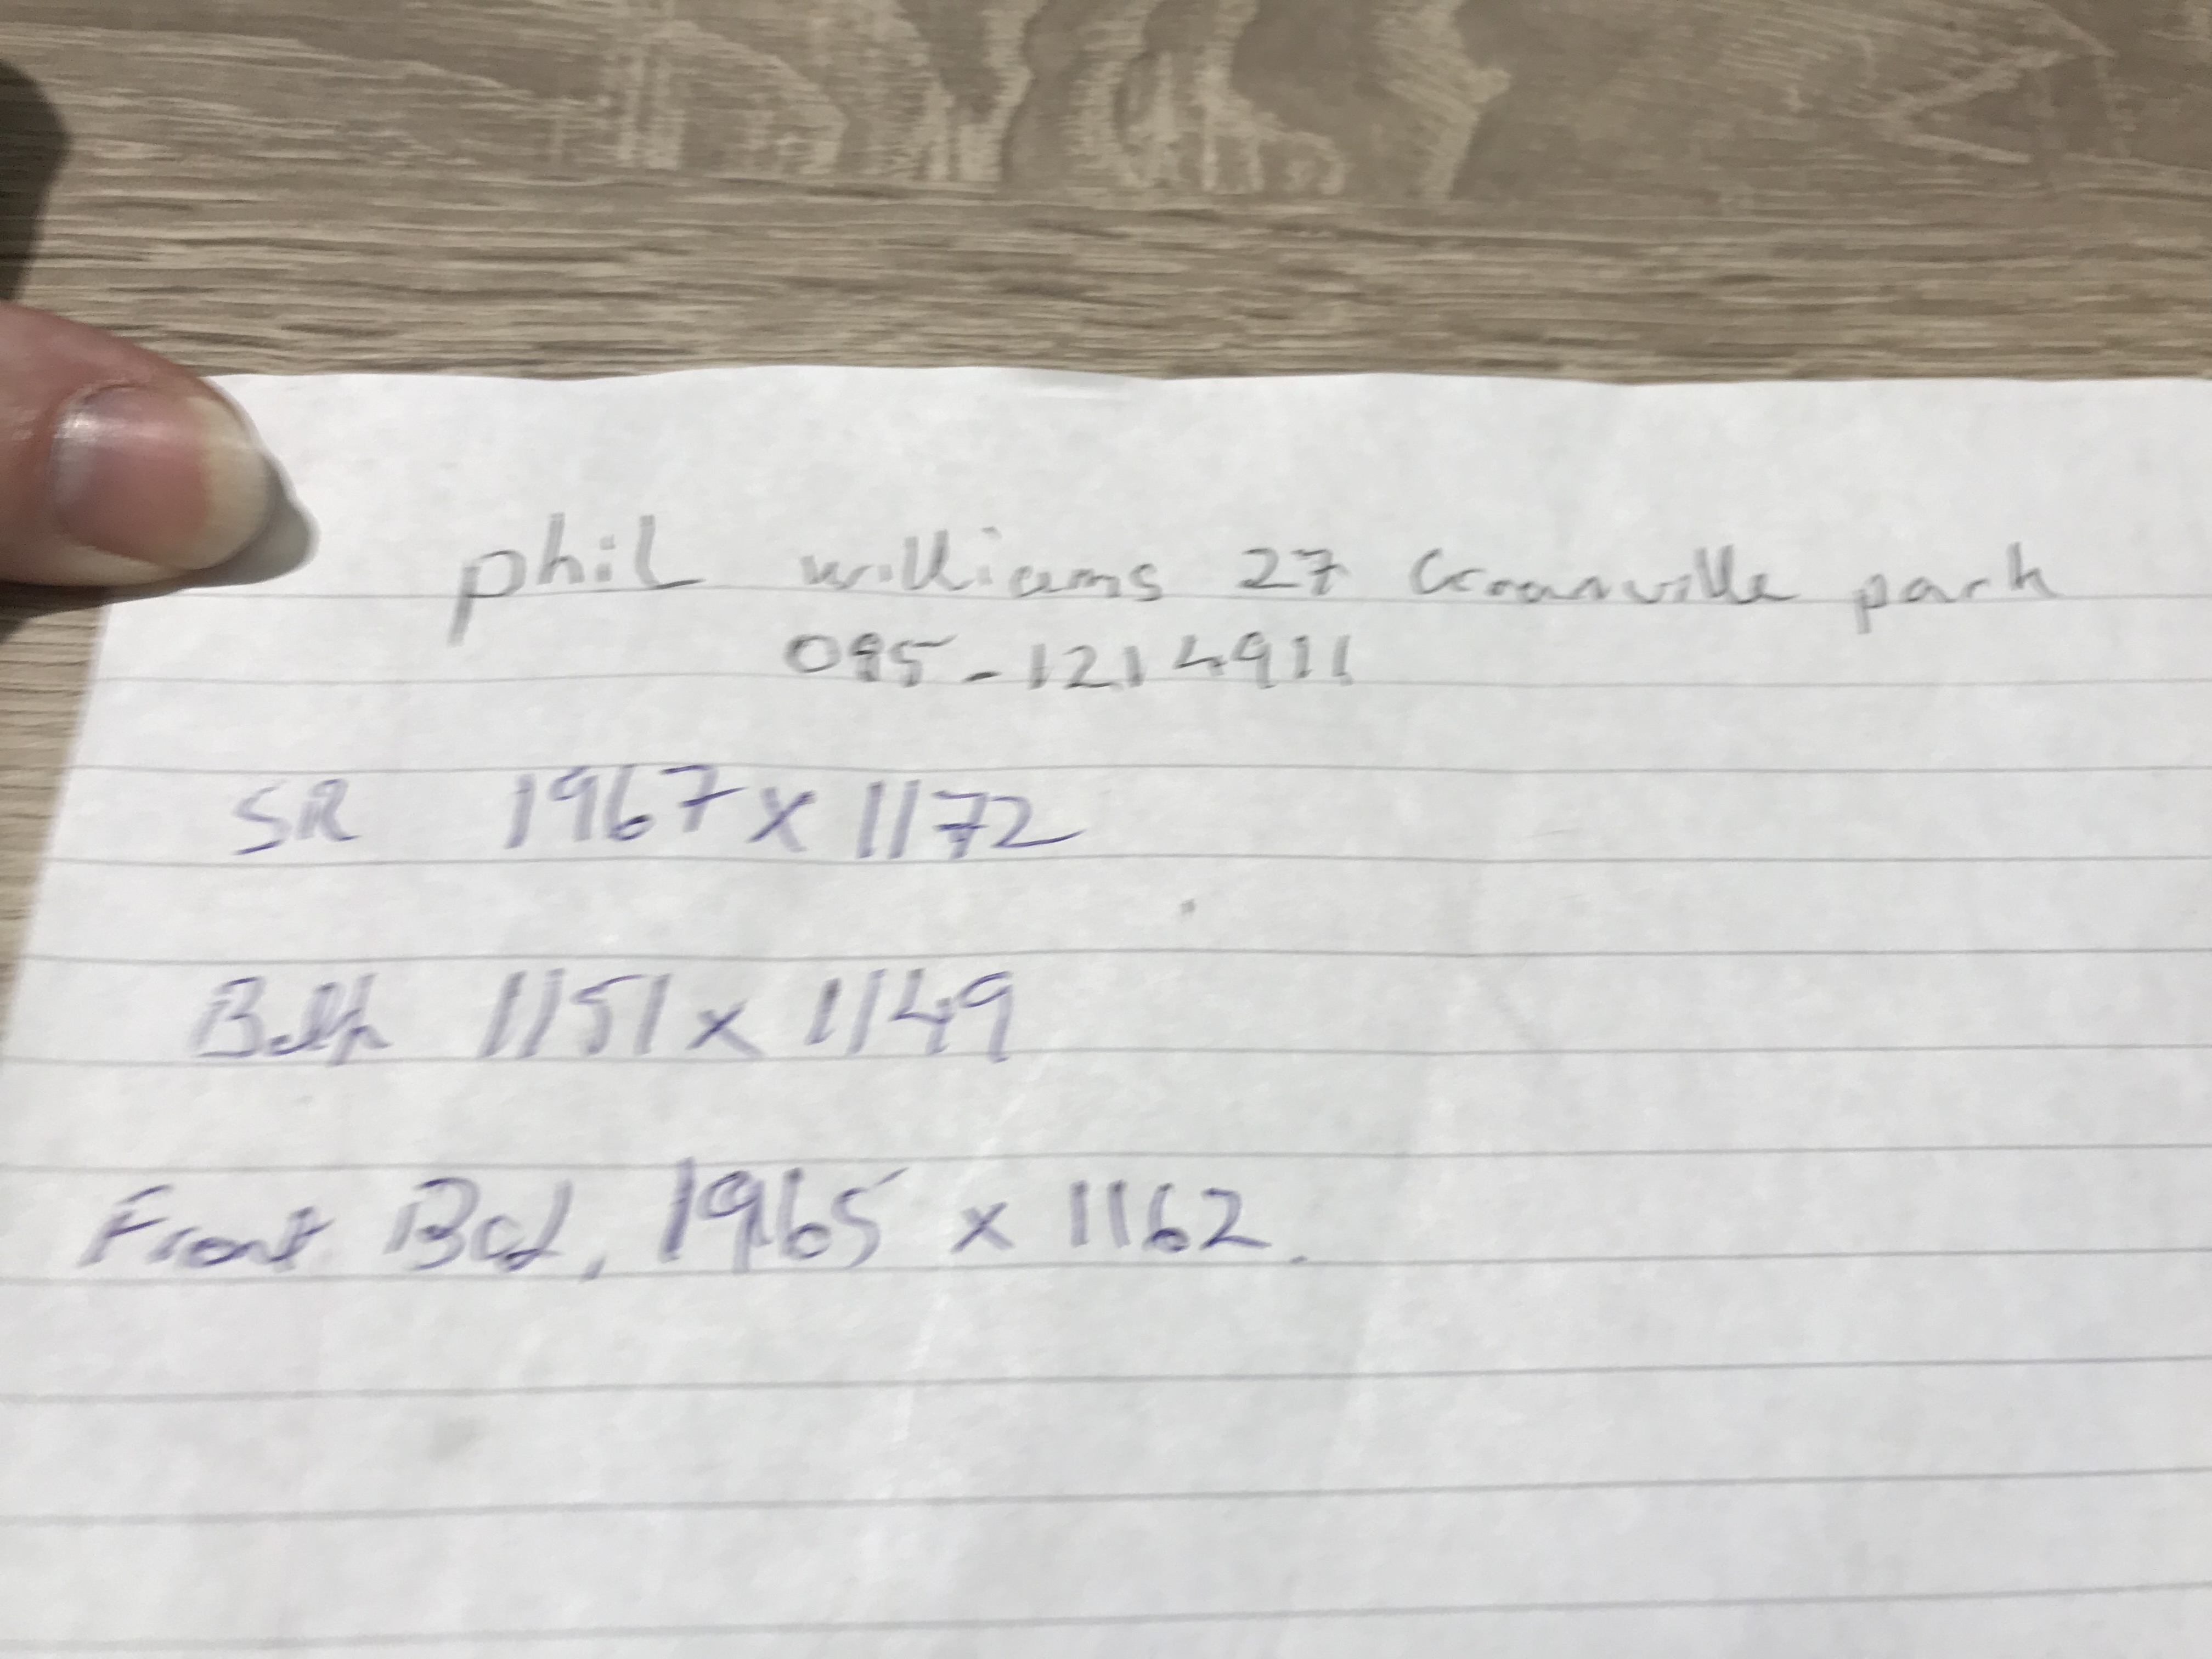 phil williams 27 Granville park
085-1214911
SR 1967 x 1172
Bath 1151 x 1149
Front Bed, 1965 x 1162.